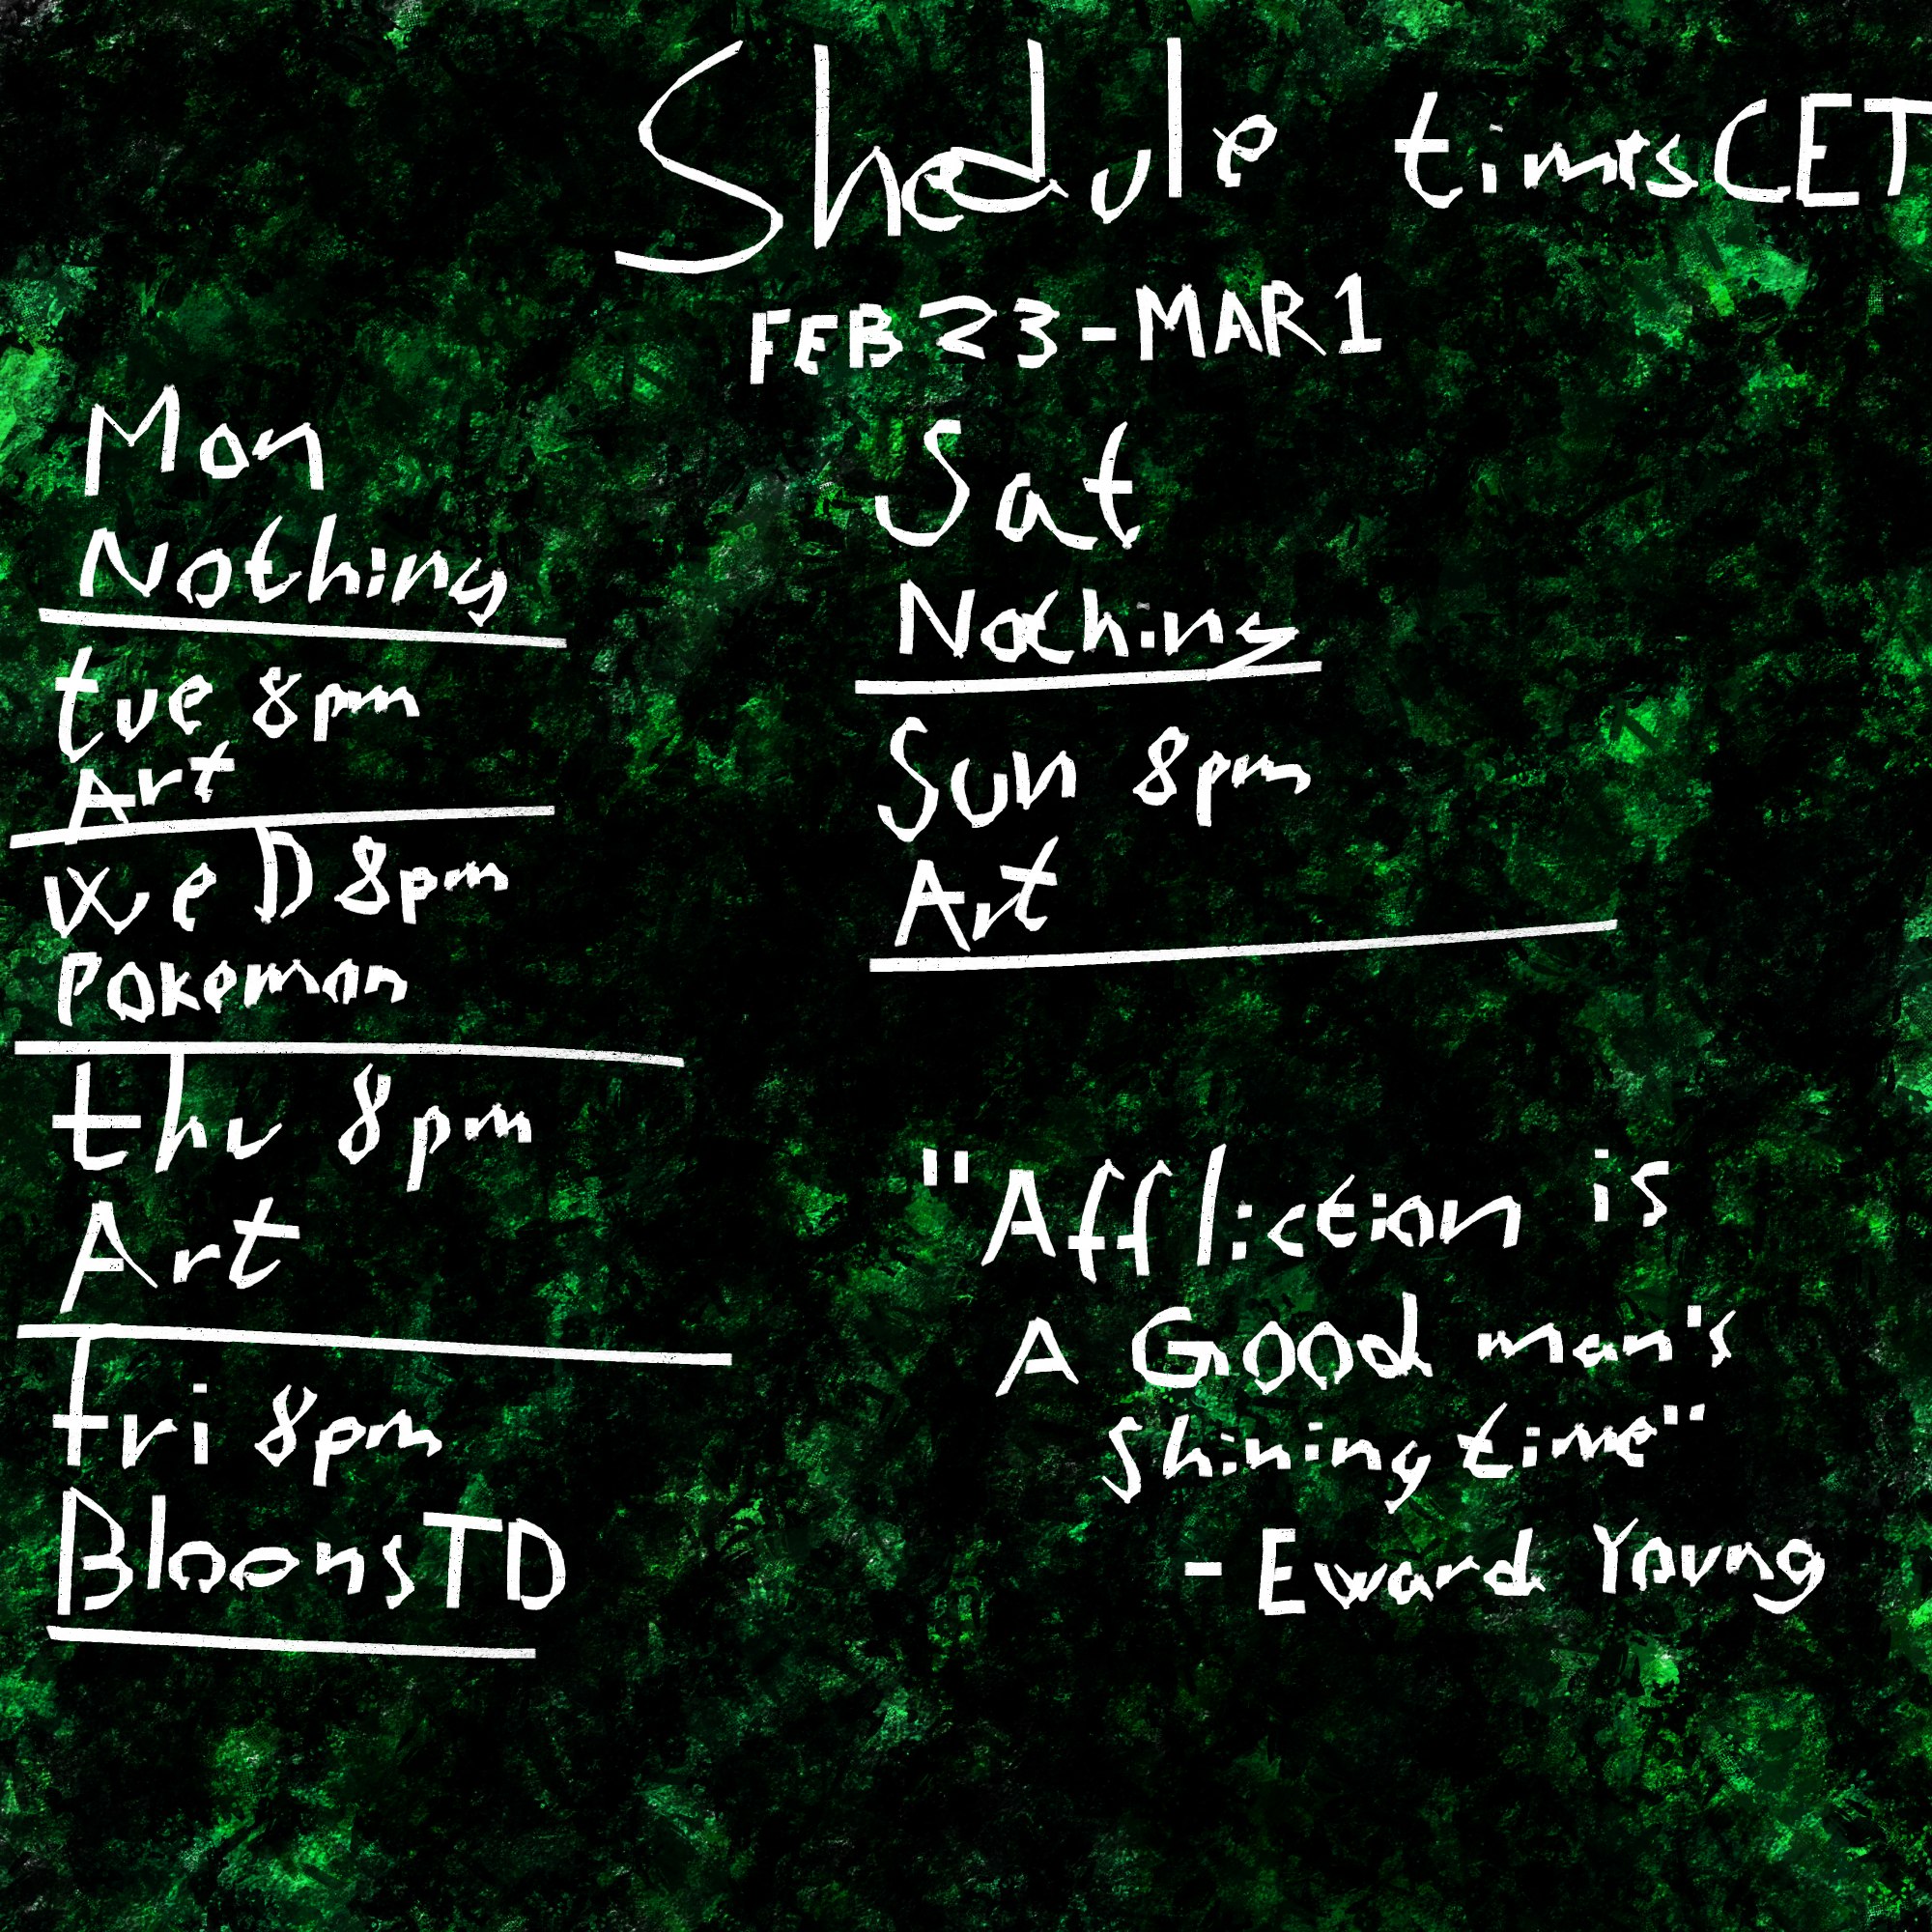 Shedule times CET
FEB 23 - MAR 1
Mon
Nothing
tue 8pm
Art
weD 8pm
Pokemon
thu 8pm
Art
fri 8pm
BloonsTD
Sat
Nothing
Sun 8pm
Art
"Affliction is
A Good man's
shining time"
- Eward Young